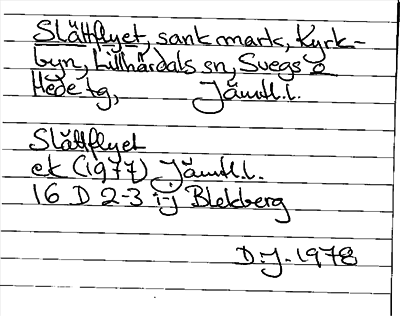 Slåttflyet, sank mark, Kyrk-
byn, Lillhärdals sn, Svegs o
Hede tg, Jämtl.l.
Slåttflyet
ek (1977) Jämtl.l.
16 D 2-3 i-j Blekberg
D.J. 1978